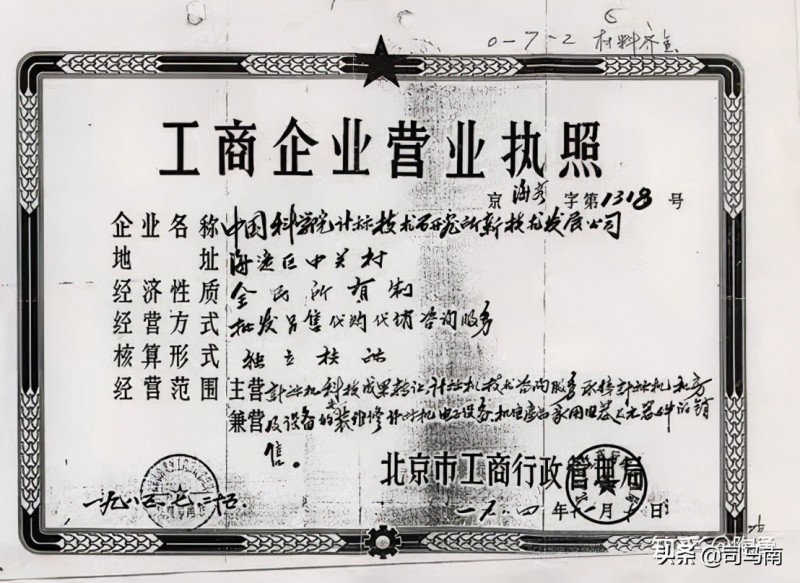 0-7-2 材料齐全
工商企业营业执照
京海字第1318号
企业名称 中国科学院计标技术研究所新技术发展公司
地址 海淀区中关村
经济性质 全民所有制
经营方式 批发另售代购代销咨询服务
核算形式 独立核算
经营范围 主营 计标机科技成果转让、计标机技术咨询服务承侍计标机机房
兼营 及设备的装维修计标机电子设备、机电产品家用电器及元器件的销
售。
北京市工商行政管理局
一九八五、七、二十五、
一九 四年 一月 日
知乎
头条 @司马南